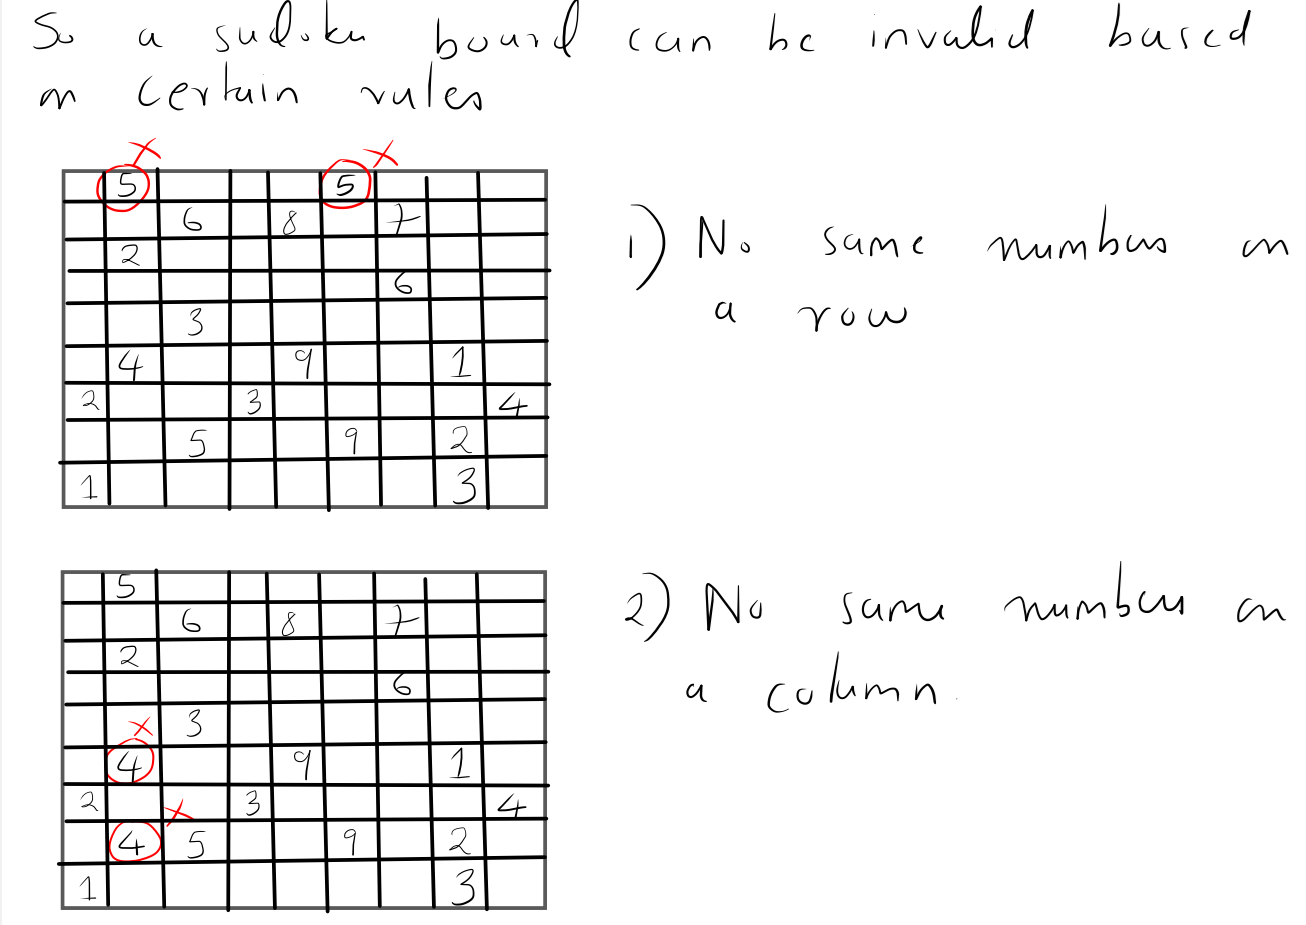 So a sudoku board can be invalid based
on certain rules
x x
5 5
6 8 7
2
6
3
4 9 1
2 3 4
5 9 2
1 3
1) No same numbers on
a row
5
6 8 7
2
6
x 3
4 9 1
2 x 3 4
4 5 9 2
1 3
2) No same numbers on
a column.